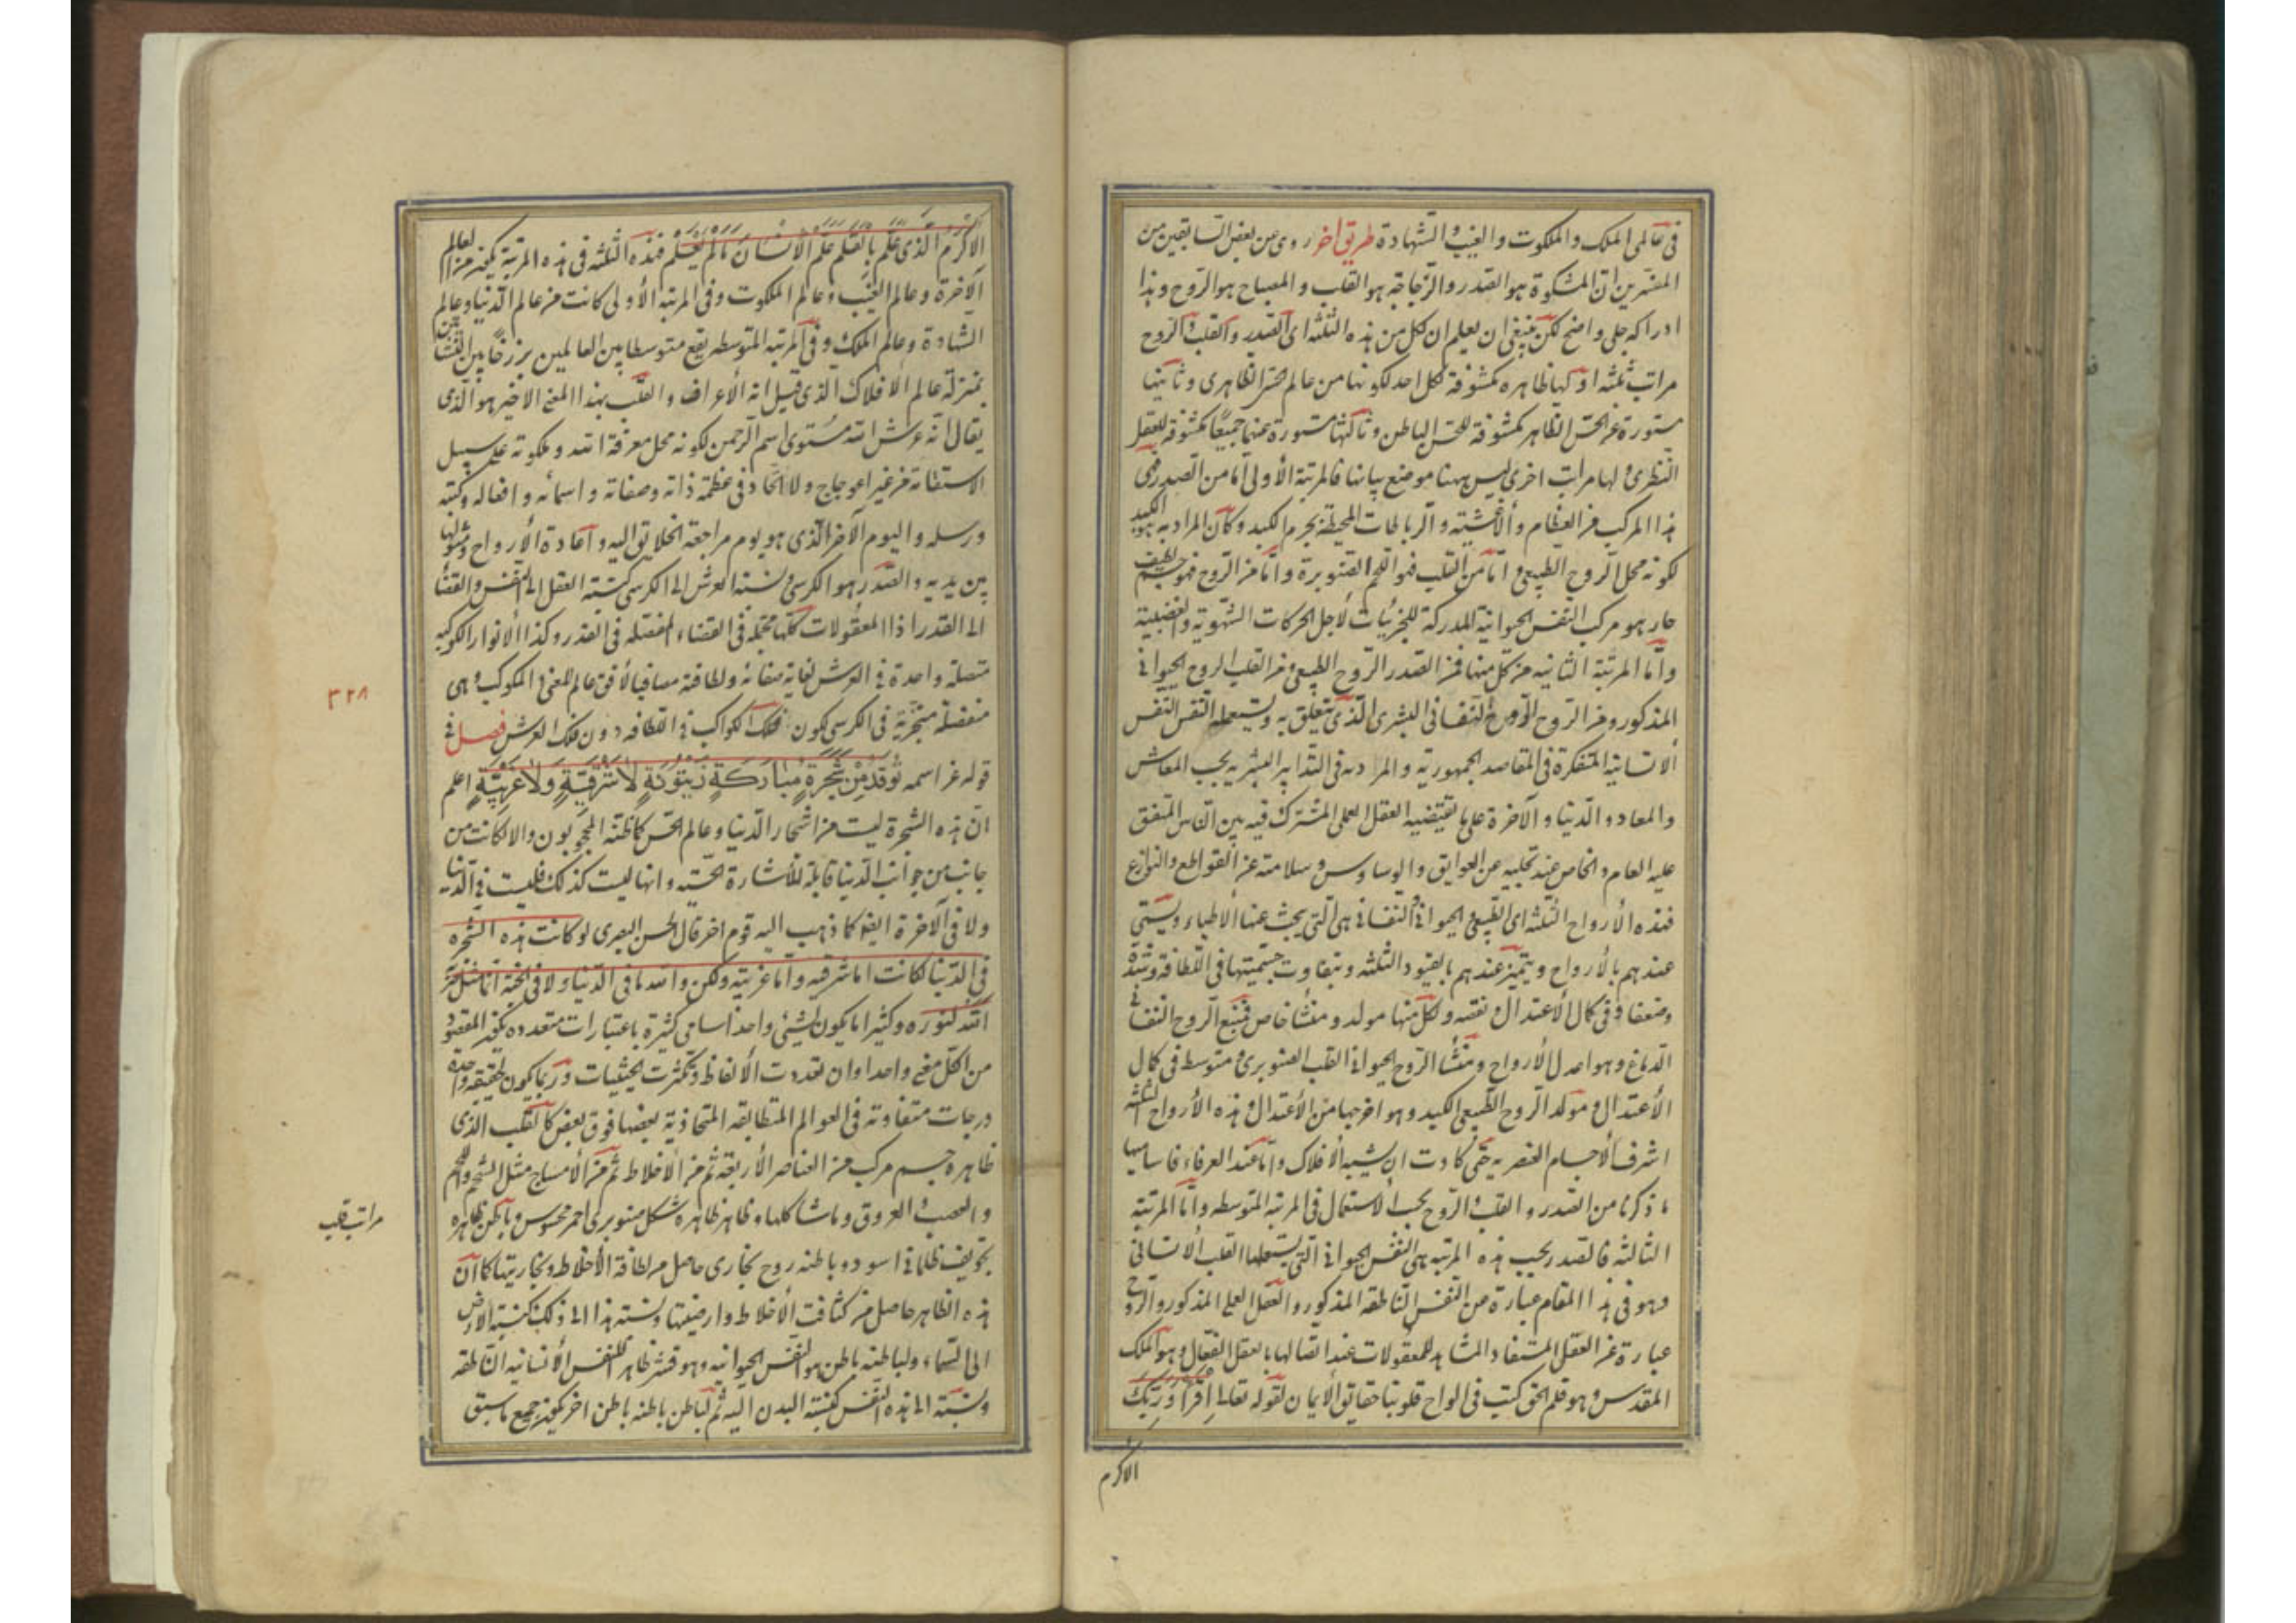 فى عالمى الملك والملكوت والغيب والشهادة طريق اخر روى عن بعض السابقين من
المفسرين ان المشكوة هو الصدر والزجاجة هو القلب والمصباح هو الروح وهذا
ادراكه جلى واضح لكن ينبغى ان يعلم ان لكل من هذه الثلثه اى الصدر والقلب والروح
مراتب ثلثه اولها ظاهره مكشوفة لكل احد لكونها من عالم الحس الظاهرى وثانيها
مستورة عن الحس الظاهر مكشوفة للحس الباطن وثالثها مستورة عنهما جميعا مكشوفة للعقل
النظرى ولها مراتب اخرى ليس ههنا موضع بيانها فالمرتبة الأولى أما من الصدر فهى
هذا المركب من العظام والأغشيته والرباطات المحيطة بجرم الكبد وكأن المراد به هو الكبد
لكونه محل الروح الطبيعى واما من القلب فهو اللحم الصنوبرة واما من الروح فهو جسم لطيف
حار هو مركب النفس الحيوانية المدركة للجزئيات لأجل الحركات الشهوية والغضبية
وأما المرتبة الثانيه من كل منها فمن الصدر الروح الطبيعى ومن القلب الروح الحيوانى
المذكور ومن الروح الروح النفسانى البشرى الذى يتعلق به ويستعمله النفس النفس
الانسانية المتفكرة فى المقاصد الجمهورية والمرادبه فى التدابير البشريه بحسب المعاش
والمعاد والدنيا والآخرة على ما يقتضيه العقل العملى المشترك فيه بين الناس المتفق
عليه العام والخاص عند تخليه عن العوايق والوساوس وسلامته عن القواطع والنوازع
فهذه الأرواح الثلثه اى الطبيعى والحيوانى والنفسانى هى التى يبحث عنها الأطباء ويسمى
عندهم بالأرواح ويتميز عندهم بالقيود الثلثه وبتفاوت جسميتها فى اللطافة وشدة
وضعفا وفى كمال الاعتدال ونقصه ولكل منها مولد ومنشأ خاص فمنبع الروح النفسانى
الدماغ وهو اعدل الأرواح ومنشأ الروح الحيوانى القلب الصنوبرى ومتوسط فى كمال
الأعتدال ومولد الروح الطبيعى الكبد وهو اخرجها من الأعتدال وهذه الأرواح الثلثه
اشرف الأجسام العنصريه حتى كادت ان يشبه الأفلاك واما عند العرفاء فاساميها
ما ذكرنا من الصدر والقلب والروح بحسب الاستعمال فى المرتبة المتوسطه وأما المرتبة
الثالثه فالصدر بحسب هذه المرتبه هى النفس الحيوانى التى يستعملها القلب الانسانى
وهو فى هذا المقام عبارة من النفس الناطقه المذكور والعقل العملى المذكور والروح
عبارة عن العقل المستفاد المشاهد للمعقولات عند اتصالها بالعقل الفعال وهو الملك
المقدس وهو قلم الحق كتب فى الواح قلوبنا حقائق الايمان لقوله تعالى اقرأ وربك
الاكرم
الاكرم الذى علم بالقلم علم الانسان ما لم يعلم فهذه الثلثه فى هذه المرتبة يكون من العالم
الآخرة وعالم الغيب وعالم الملكوت وفى المرتبة الأولى كانت من عالم الدنيا وعالم
الشهادة وعالم الملك وفى المرتبه المتوسطه يقع متوسطا بين العالمين برزخا بين النشأتين
بمنزلة عالم الافلاك الذى قيل انه الأعراف والقلب بهذا المعنى الاخير هو الذى
يقال انه عرش الله مستوى اسم الرحمن لكونه محل معرفة الله وملكوته على سبيل
الاستقامة من غير اعوجاج ولا الحاد فى عظمة ذاته وصفاته واسمائه وافعاله وكتبه
ورسله واليوم الآخر الذى هو يوم مراجعة الخلائق اليه واعادة الأرواح ومثولها
بين يديه والصدر هو الكرسى ونسبته العرش الى الكرسى كنسبته العقل الى النفس والقضاء
الى القدر اذ المعقولات كلها مجمله فى القضاء مفصله فى القدر وكذا الانوار الكوكبيه
متصلة واحدة فى العرش لغاية صفائه ولطافته مصاقبا لأفق عالم المعنى والمكوكب وهى
منفصلة متجزية فى الكرسى لكون فلك الكواكب فى اللطافه دون فلك العرش فصل فى
قوله عز اسمه توقد من شجرة مباركة زيتونة لا شرقية ولا غربية اعلم
ان هذه الشجرة ليست من اشجار الدنيا وعالم الحس كما ظنه المحجوبون والا لكانت من
جانب من جوانب الدنيا قابلة للأشارة الحسيه وانها ليست كذلك فليست فى الدنيا
ولا فى الآخرة ايضا كما ذهب اليه قوم اخر قال الحسن البصرى لو كانت هذه الشجره
فى الدنيا لكانت اما شرقيه واما غربيته ولكن والله ما فى الدنيا ولا فى الجنة انما مثل ضرب
الله لنوره وكثيرا ما يكون لشيئ واحد اسامى كثيرة باعتبارات متعدده يكون المقصود
من الكل معنى واحدا وان تعددت الألفاظ وتكثرت الحيثيات وربما يكون لحقيقه واحدة
درجات متفاوته فى العوالم المتطابقه المتحاذية بعضها فوق بعض كالقلب الذى
ظاهره جسم مركب من العناصر الأربعة ثم من الأخلاط ثم من الأمساج مثل الشحم واللحم
والعصب والعروق وما شاكلها وظاهر ظاهره شكل صنوبرى احمر محسوس وباطن ظاهره
تجويف ظلمانى اسود وباطنه روح بخارى حاصل من لطافة الأخلاط وبخاريتها كما ان
هذه الظاهر حاصل من كثافت الأخلاط وارضيتها ونسبته هذا الى ذلك كنسبته الارض
الى السماء ولباطنه باطن هو النفس الحيوانيه وهو قشر ظاهر للنفس الأنسانيه الناطقه
ونسبته الى هذه النفس كنسبته البدن اليه ثم لباطن باطنه باطن اخر يكون جميع ما سبق
٣٢٨
مراتب قلب